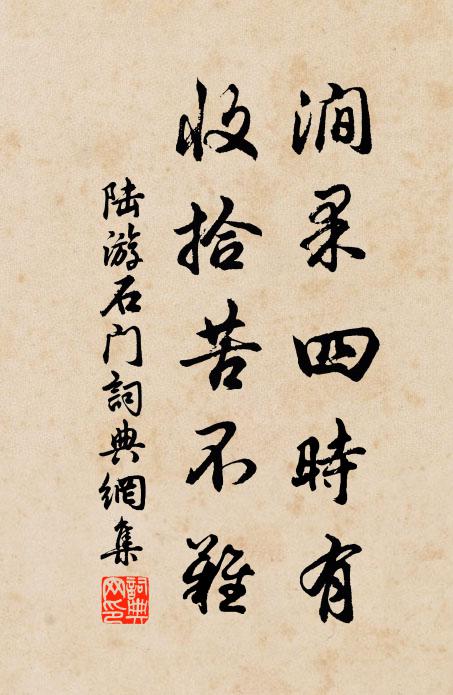 澗果四時有
收拾苦不難
陆游石门詞典網集
詞典
网印